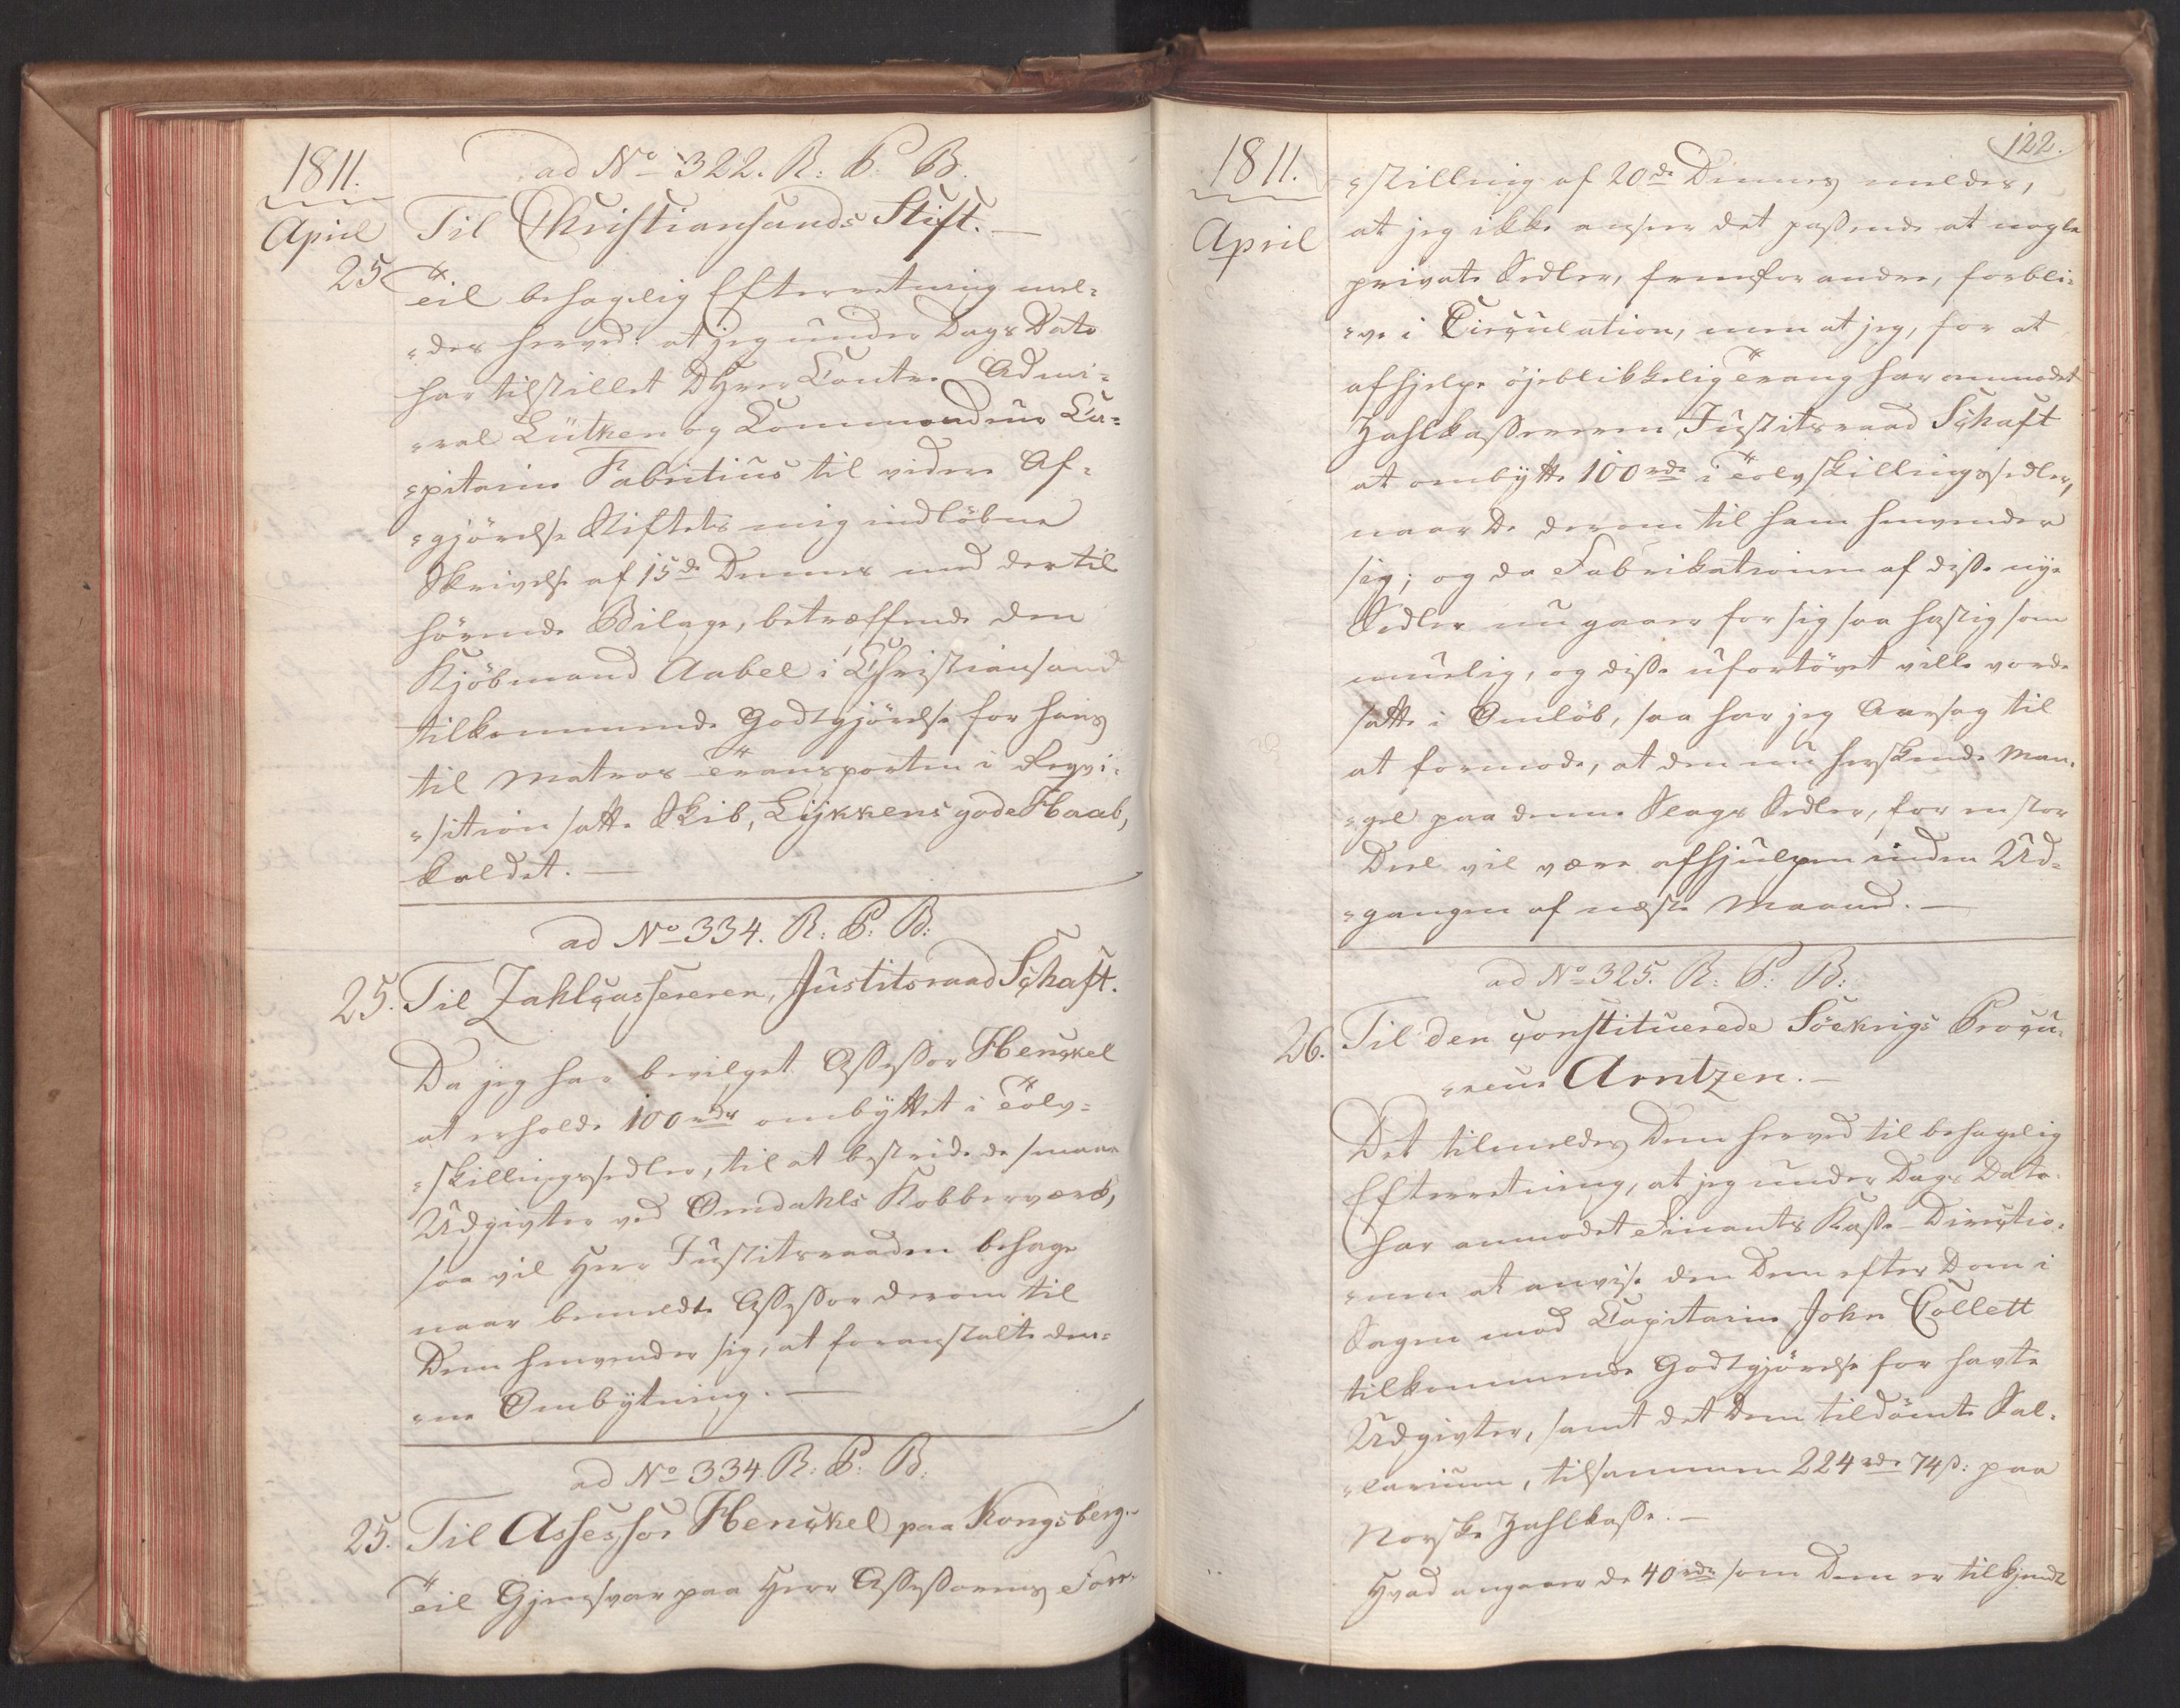 1811.
April
ad No 322. R: P: B.
Til Christiansands Stift. —
25. Til behagelig Efterretning mel-
"des herved: at jeg under Dags Dato
har tilstillet DHrer Contre-Admi-
"ral Lütken og Commandeur Ca-
"pitaine Fabritius til videre Af-
"gjörelse Stiftets mig indlöbne
Skrivelse af 15de Dennes med dertil
hörende Bilage, betræffende den
Kjöbmand Aabel i Christiansand
tilkommende Godtgjörelse for hans
til Matros-Transporten i Reqvi-
"sition satte Skib, Lykkens gode Haab,
kaldet. —
ad No 334. R: P: B:
25. Til Zahlcassereren, Justitsraad Schaft.
Da jeg har bevilget Assessor Henckel
at erholde 100 rdr ombyttet i Tolv-
"skillingssedler, til at bestride de smaae
Udgivter ved Omdahls Kobberværk,
saa vil Herr Justitsraaden behage
naar bemeldte Assessor derom til
Dem henvender sig, at foranstalte den-
"ne Ombytning. —
ad No 334 R: P: B:
25. Til Assessor Henckel paa Kongsberg.
Til Gjensvar paa Herr Assessorens Fore-
122.
1811.
April
"stilling af 20de Dennes meldes,
at jeg ikke anseer det passende at nogle
private Sedler, fremfor andre, forbli-
"ve i Circulation, men at jeg, for at
afhjelpe öjeblikkelig Trang har anmodet
Zahlkassereren, Justitsraad Schaft
at ombytte 100 rdr i Tolvskillingssedler,
naar De derom til ham henvender
sig; og da Fabrikationen af disse nye
Sedler nu gaaer for sig saa hastig som
muelig, og disse ufortövet ville vorde
satte i Omlöb, saa har jeg Aarsag til
at formode, at den nu herskende Man-
"gel paa denne Slags Sedler, for en stor
Deel vil være afhjulpen inden Ud-
"gangen af næste Maaned. —
ad No 325. R: P: B:
26. Til den constituerede Söekrigs Procu-
"reur Arntzen. —
Det tilmeldes Dem herved til behagelig
Efterretning, at jeg under Dags Dato
har anmodet Finants Kasse-Directio-
"nen at anvise den Dem efter Dom i
Sagen mod Capitaine John Collett
tilkommende Godtgjörelse for havte
Udgivter, samt det Dem tildömte Sal-
"larium, tilsammen 224 rdr 74 ß: paa
Norske Zahlkasse. —
Hvad angaaer de 40 rdr som Dem er tilkjendt